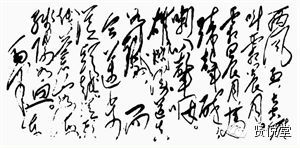 西风烈长空雁
叫霜晨月
霜晨月马
蹄声碎
喇叭声咽
雄关漫道真
如铁而
今迈步
从头越
苍山如海
残阳如血
毛泽东